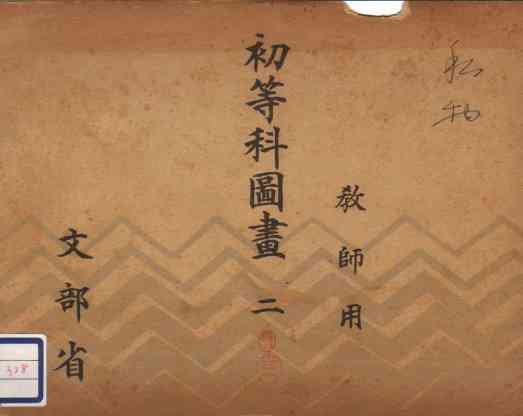 私物
教師用
初等科圖畫 二
文部省
328